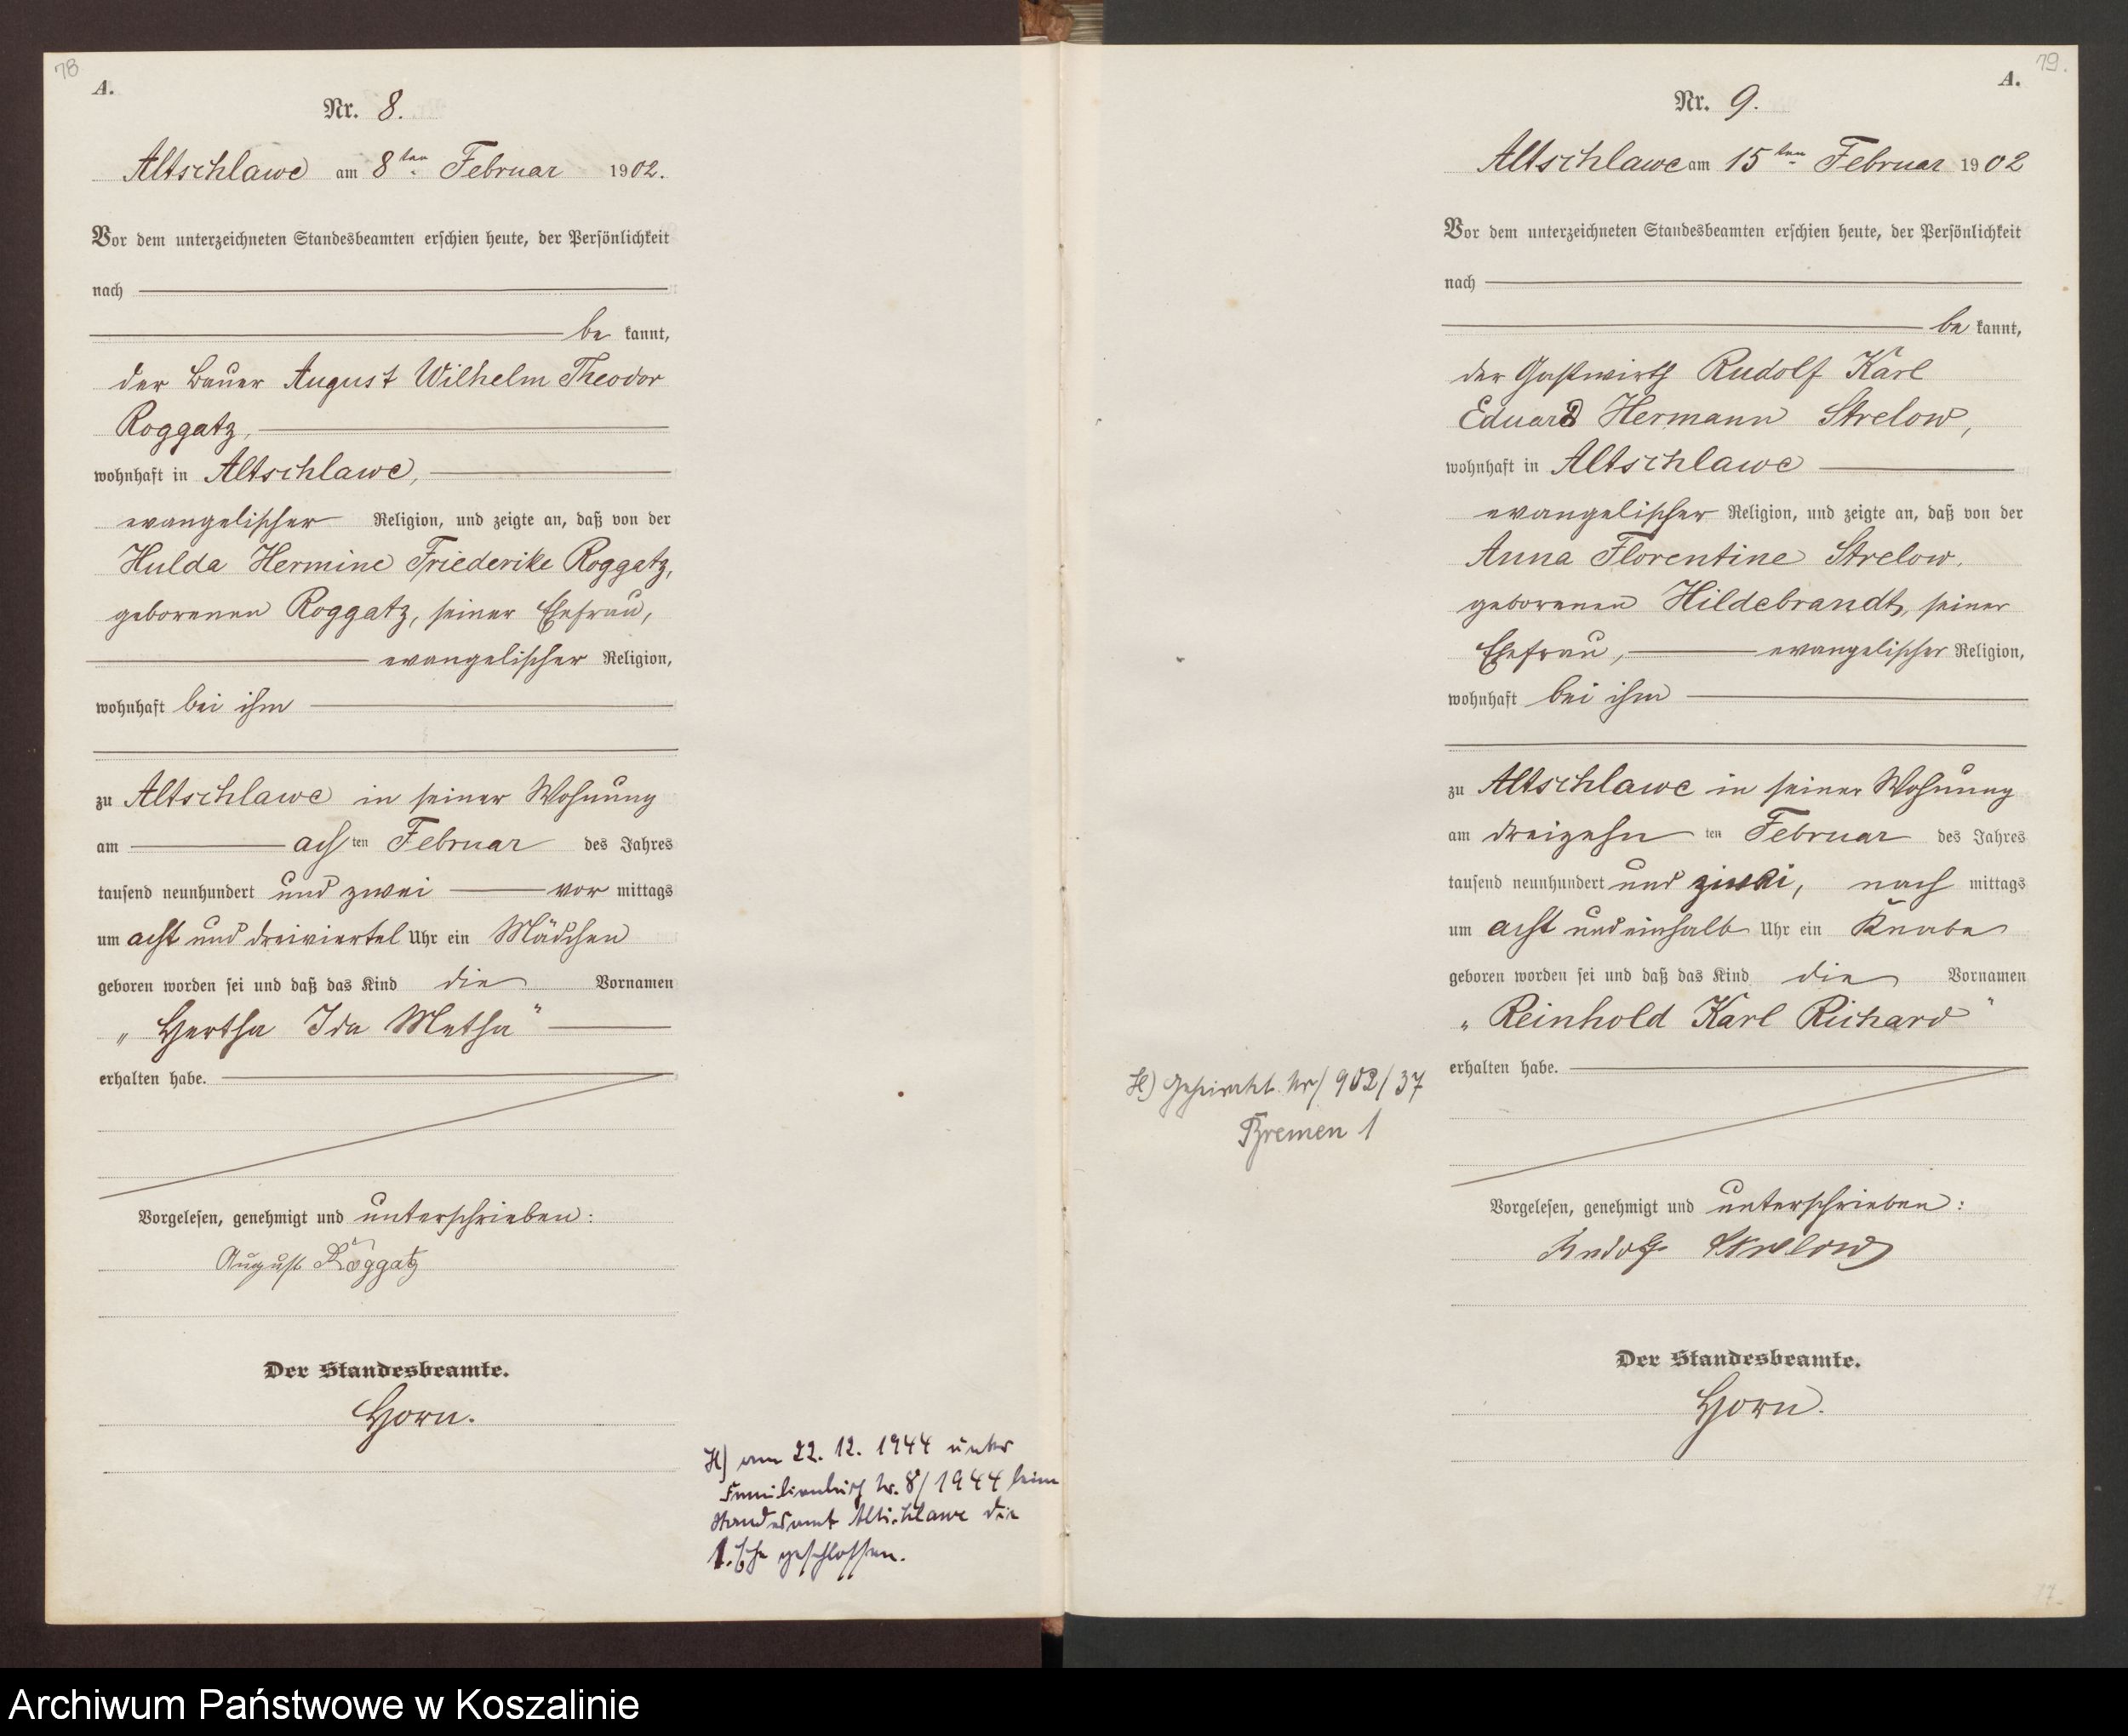 78
A.
Nr. 8.
Altschlawe am 8ten Februar 1902.
Vor dem unterzeichneten Standesbeamten erschien heute, der Persönlichkeit
nach
be kannt,
der Bauer August Wilhelm Theodor
Roggatz,
wohnhaft in Altschlawe,
evangelischer Religion, und zeigte an, daß von der
Hulda Hermine Friederike Roggatz,
geborenen Roggatz, seiner Ehefrau,
evangelischer Religion,
wohnhaft bei ihm
zu Altschlawe in seiner Wohnung
am ach ten Februar des Jahres
tausend neunhundert und zwei vor mittags
um acht und dreiviertel Uhr ein Mädchen
geboren worden sei und daß das Kind die Vornamen
„Hertha Ida Metha“
erhalten habe.
Vorgelesen, genehmigt und unterschrieben:
August Roggatz
Der Standesbeamte.
Horn.
H) am 22. 12. 1944 unter
Familienbuch Nr. 8/1944 beim
Standesamt Altschlawe die
1. Ehe geschlossen.
79.
A.
Nr. 9.
Altschlawe am 15ten Februar 1902
Vor dem unterzeichneten Standesbeamten erschien heute, der Persönlichkeit
nach
be kannt,
der Gastwirth Rudolf Karl
Eduard Hermann Strelow,
wohnhaft in Altschlawe
evangelischer Religion, und zeigte an, daß von der
Anna Florentine Strelow,
geborenen Hildebrandt, seiner
Ehefrau, evangelischer Religion,
wohnhaft bei ihm
zu Altschlawe in seiner Wohnung
am dreizehn ten Februar des Jahres
tausend neunhundert und zwei, nach mittags
um acht und einhalb Uhr ein Knabe
geboren worden sei und daß das Kind die Vornamen
„Reinhold Karl Richard“
erhalten habe.
H) Geheiraht. Nr/ 902/37
Bremen 1
Vorgelesen, genehmigt und unterschrieben:
Rudolf Strelow
Der Standesbeamte.
Horn.
17.
Archiwum Państwowe w Koszalinie